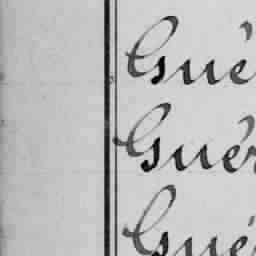 Gué
Guér
Gué